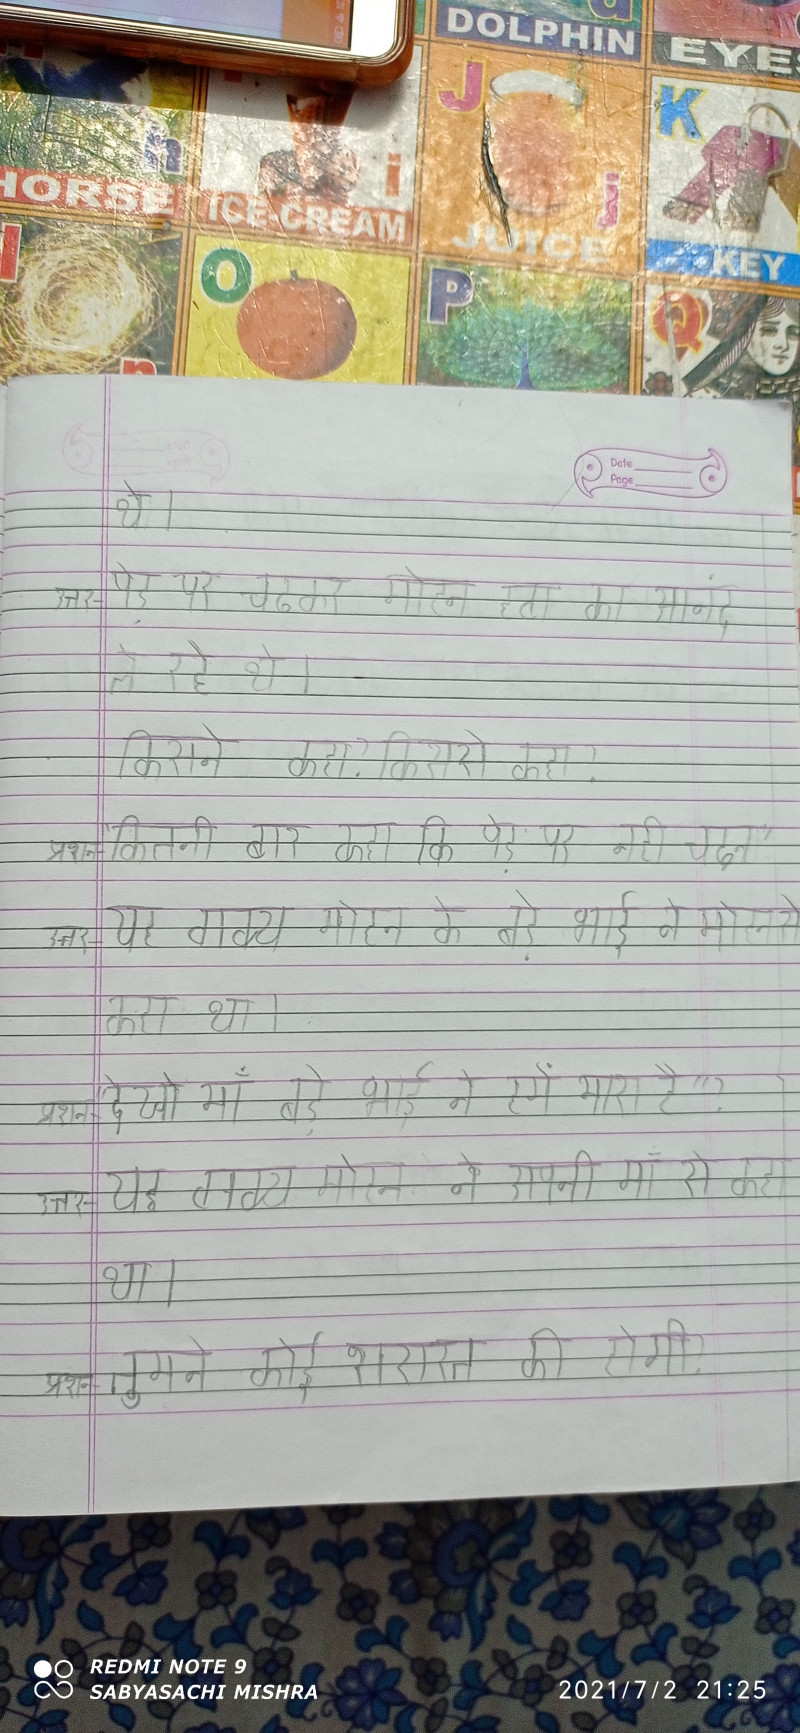 DOLPHIN
EYES
J
K
h
i
j
HORSE
ICE-CREAM
JUICE
KEY
O
P
Q
n
Date
Page
थे।
उत्तर- पेड़ पर चढकर मोहन हवा का आनंद
ले रहे थे।
किसने कहा? किससे कहा?
प्रशन- "कितनी बार कहा कि पेड़ पर नही चढ़न"
उत्तर- यह वाक्य मोहन के बड़े भाई ने मोहनसे
कहा था।
प्रशन- "देखो माँ बड़े भाई ने हमें मारा है"?
उत्तर- यह वाक्य मोहन ने अपनी माँ से कहा
था।
प्रशन- तुमने कोई शरारत की होगी?
REDMI NOTE 9
SABYASACHI MISHRA
2021/7/2 21:25